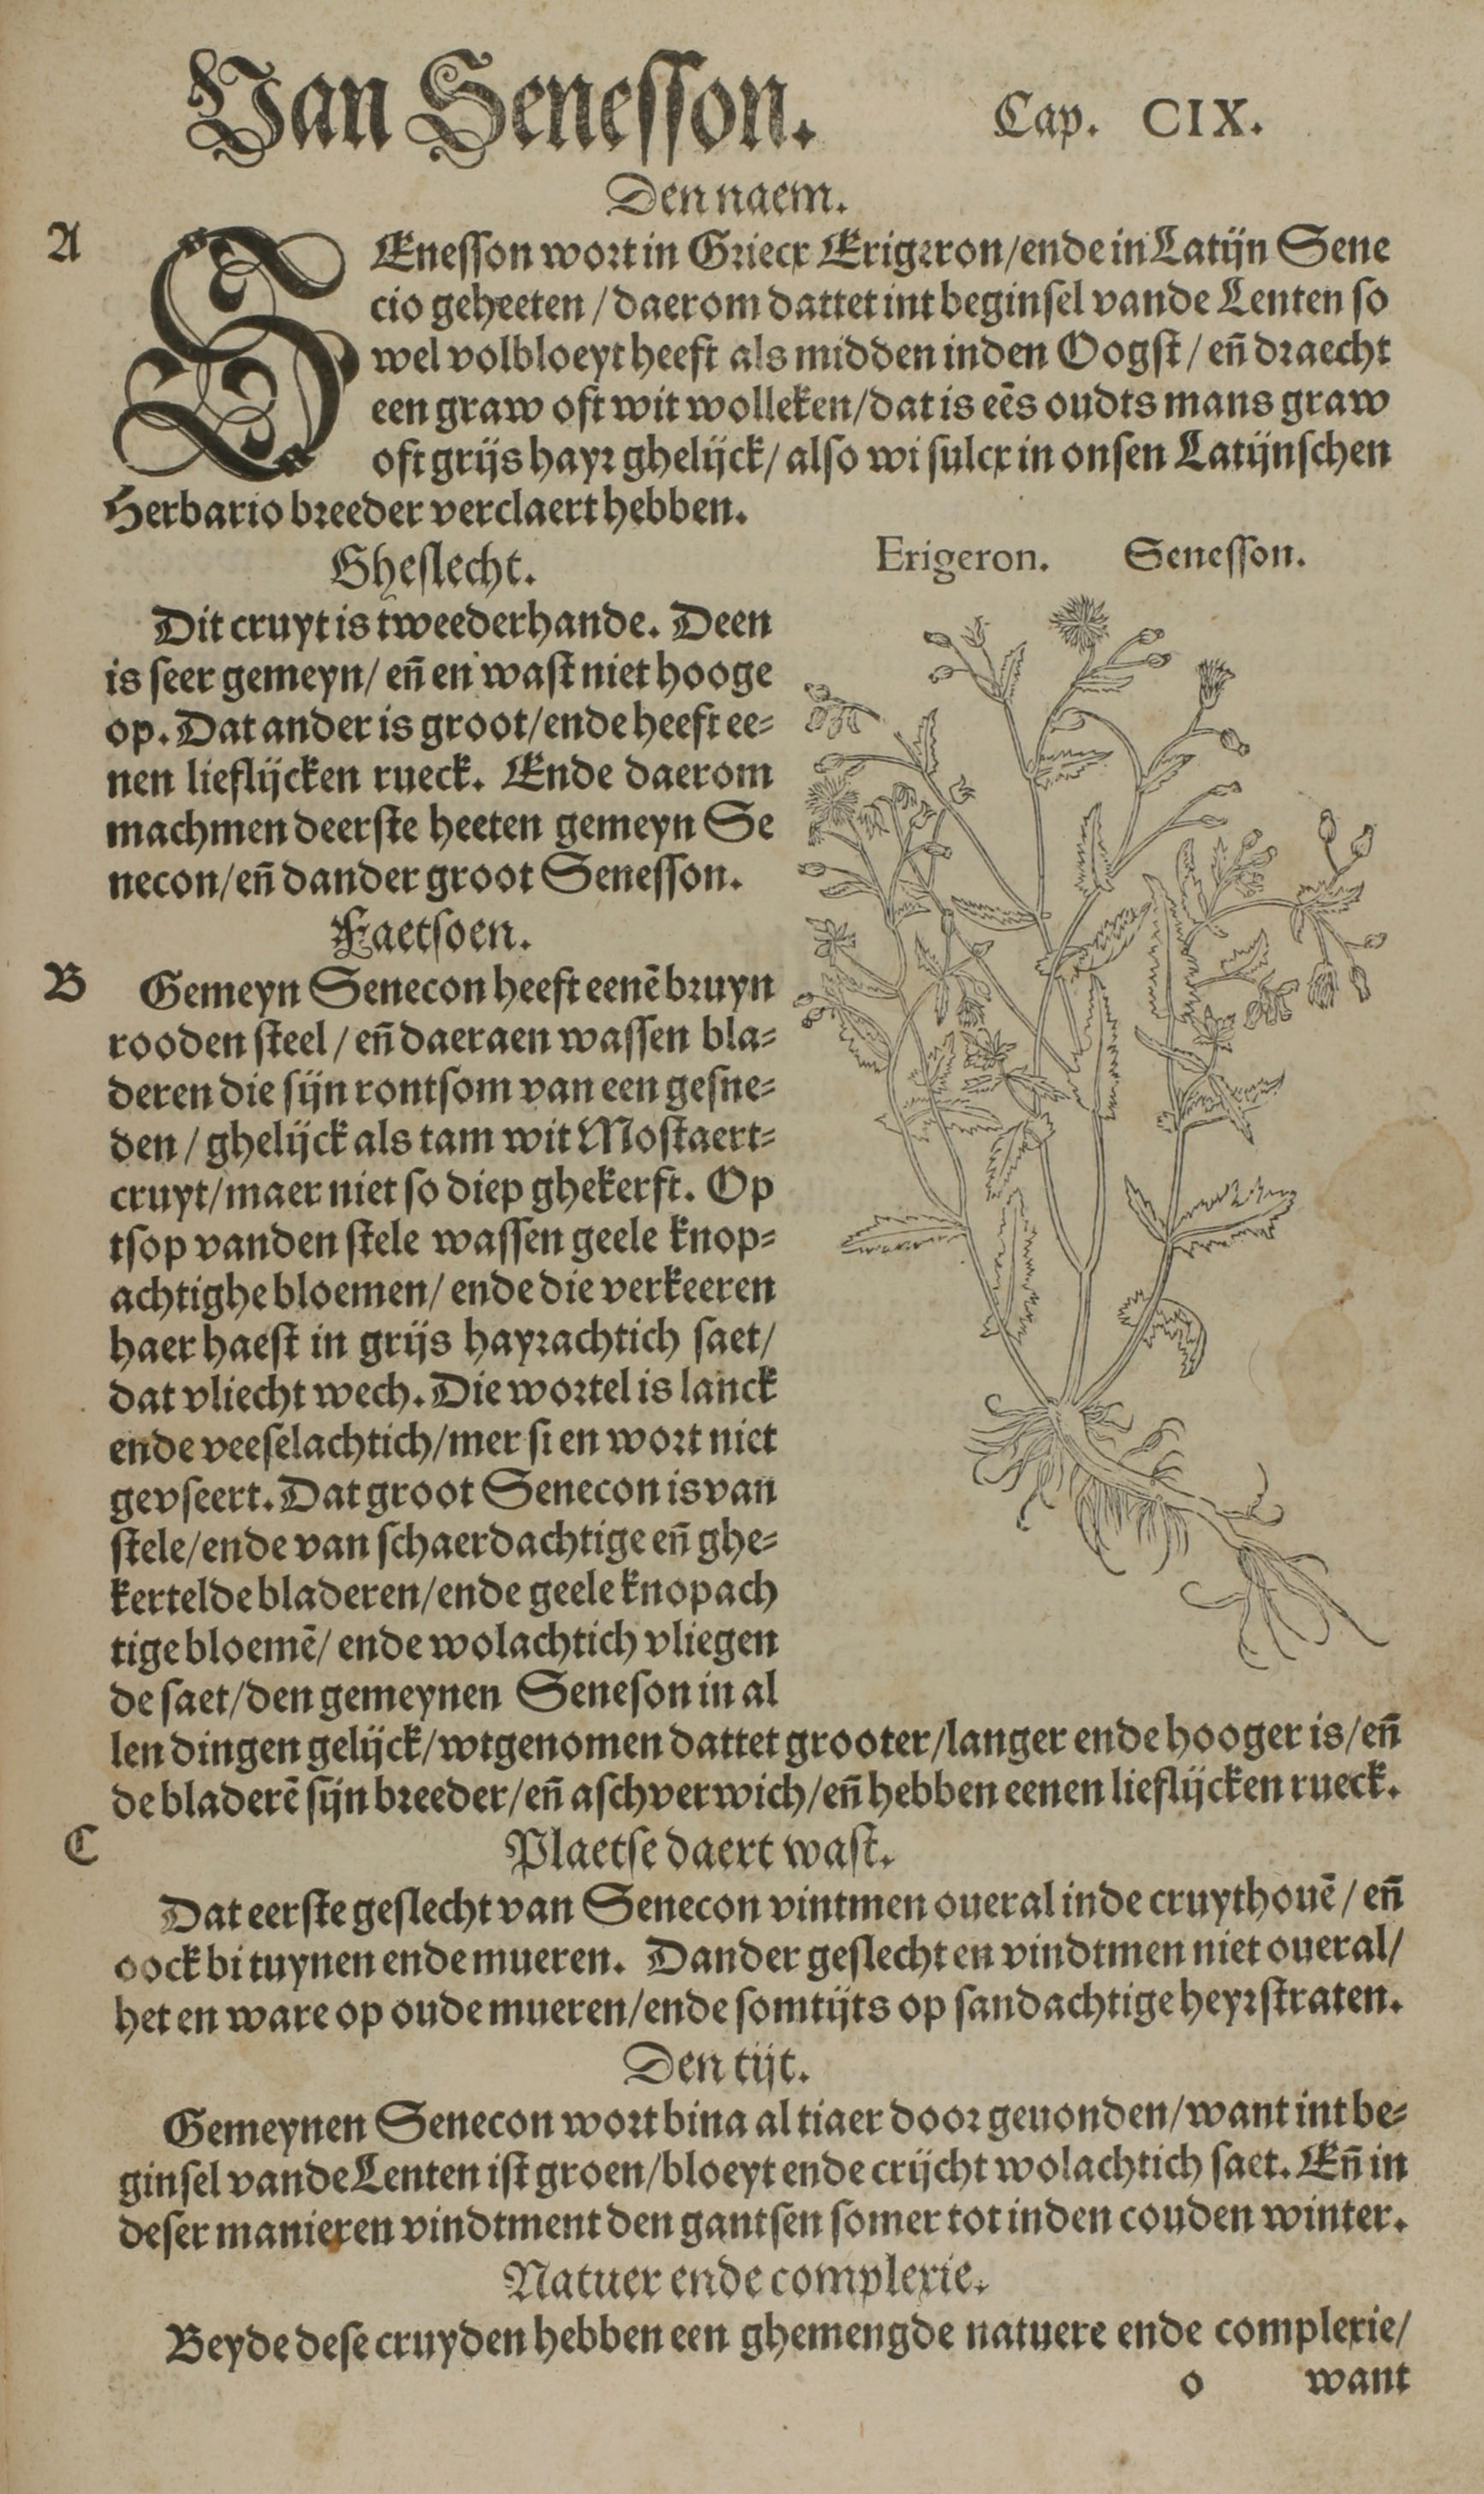 Van Senesson. Cap. CIX.
Den naem.
A
SEnesson wort in Griecx Erigeron/ende in Latijn Sene
cio geheeten/daerom dattet int beginsel vande Lenten so
wel volbloeyt heeft als midden inden Oogst/en̄ draecht
een graw oft wit wolleken/dat is eēs oudts mans graw
oft grijs hayr ghelijck/also wi sulcx in onsen Latijnschen
Herbario breeder verclaert hebben.
Gheslecht.
Dit cruyt is tweederhande. Deen
is seer gemeyn/en̄ en wast niet hooge
op. Dat ander is groot/ende heeft ee-
nen lieflijcken rueck. Ende daerom
machmen deerste heeten gemeyn Se
necon/en̄ dander groot Senesson.
Faetsoen.
B
Gemeyn Senecon heeft eenē bruyn
rooden steel/en̄ daeraen wassen bla-
deren die sijn rontsom van een gesne-
den/ghelijck als tam wit Mostaert-
cruyt/maer niet so diep ghekerft. Op
tsop vanden stele wassen geele knop-
achtighe bloemen/ende die verkeeren
haer haest in grijs hayrachtich saet/
dat vliecht wech. Die wortel is lanck
ende veeselachtich/mer si en wort niet
gevseert. Dat groot Senecon is van
stele/ende van schaerdachtige en̄ ghe-
kertelde bladeren/ende geele knopach
tige bloemē/ende wolachtich vliegen
de saet/den gemeynen Seneson in al
len dingen gelijck/wtgenomen dattet grooter/langer ende hooger is/en̄
de bladerē sijn breeder/en̄ aschverwich/en̄ hebben eenen lieflijcken rueck.
Erigeron. Senesson.
C
Plaetse daert wast.
Dat eerste geslecht van Senecon vintmen oueral inde cruythouē/en̄
oock bi tuynen ende mueren. Dander geslecht en vindtmen niet oueral/
het en ware op oude mueren/ende somtijts op sandachtige heyrstraten.
Den tijt.
Gemeynen Senecon wort bina al tiaer door geuonden/want int be-
ginsel vande Lenten ist groen/bloeyt ende crijcht wolachtich saet. En̄ in
deser manieren vindtment den gantsen somer tot inden couden winter.
Natuer ende complexie.
Beyde dese cruyden hebben een ghemengde natuere ende complexie/
o want